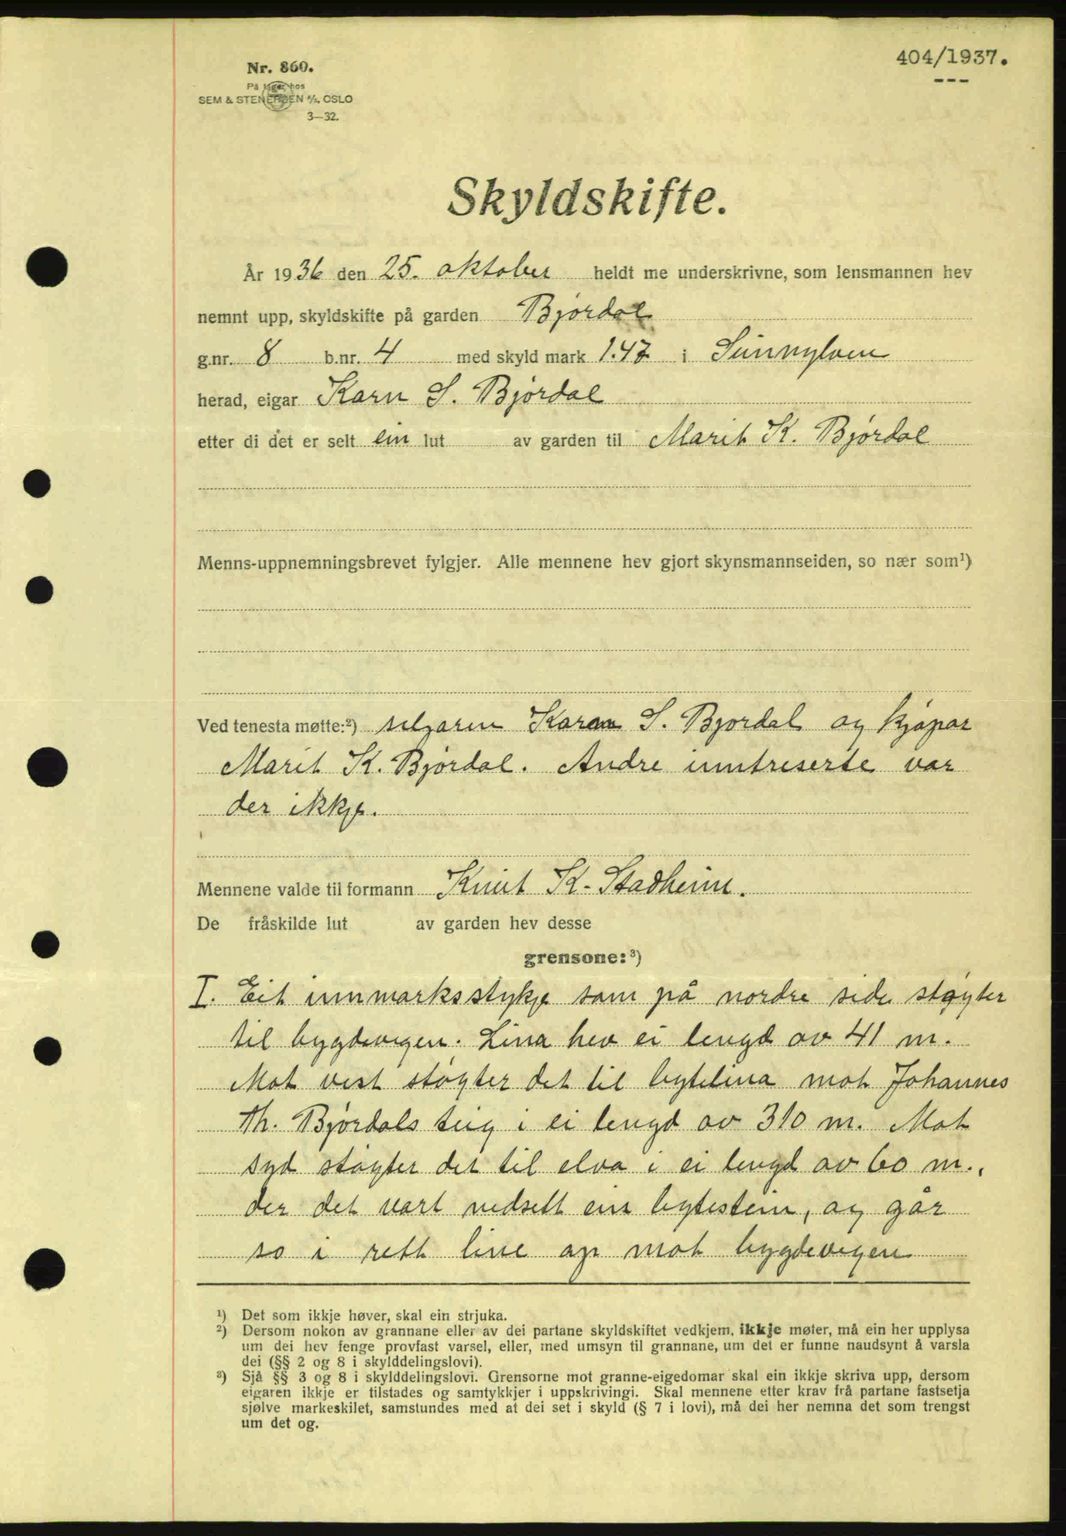 404/1937.
Nr. 860.
På lager hos
SEM & STENERSEN A/S, OSLO
3—32.
Skyldskifte.
År 1936 den 25. oktober heldt me underskrivne, som lensmannen hev
nemnt upp, skyldskifte på garden Bjørdal
g.nr. 8 b.nr. 4 med skyld mark 1.47 i Sunnylven
herad, eigar Karn S. Bjørdal
etter di det er selt ein lut av garden til Marit K. Bjørdal
Menns-uppnemningsbrevet fylgjer. Alle mennene hev gjort skynsmannseiden, so nær som¹)
Ved tenesta møtte:²) seljaren S. Bjordal og kjøpar
Marit K. Bjørdal. Andre inntreserte var
der ikkje.
Mennene valde til formann Knut K. Stadheim.
De fråskilde lut av garden hev desse
grensone:³)
I. Eit innmarksstykje som på nordre side støyter
til bygdevegen. Lina hev ei lengd av 41 m.
Mot vest støyter det til bytelina mot Johannes
Th. Bjørdals teig i ei lengd av 310 m. Mot
syd støyter det til elva i ei lengd av 60 m.,
der det vart nedsett ein bytestein, og går
so i rett line op mot bygdevegen
¹) Det som ikkje høver, skal ein strjuka.
²) Dersom nokon av grannane eller av dei partane skyldskiftet vedkjem, ikkje møter, må ein her upplysa
um dei hev fenge provfast varsel, eller, med umsyn til grannane, um det er funne naudsynt å varsla
dei (§§ 2 og 8 i skylddelingslovi).
³) Sjå §§ 3 og 8 i skylddelingslovi. Grensorne mot granne-eigedomar skal ein ikkje skriva upp, dersom
eigaren ikkje er tilstades og samtykkjer i uppskrivingi. Skal mennene etter krav frå partane fastsetja
sjølve markeskilet, samstundes med at dei set i skyld (§ 7 i lovi), må dei her nemna det som trengst
um det og.